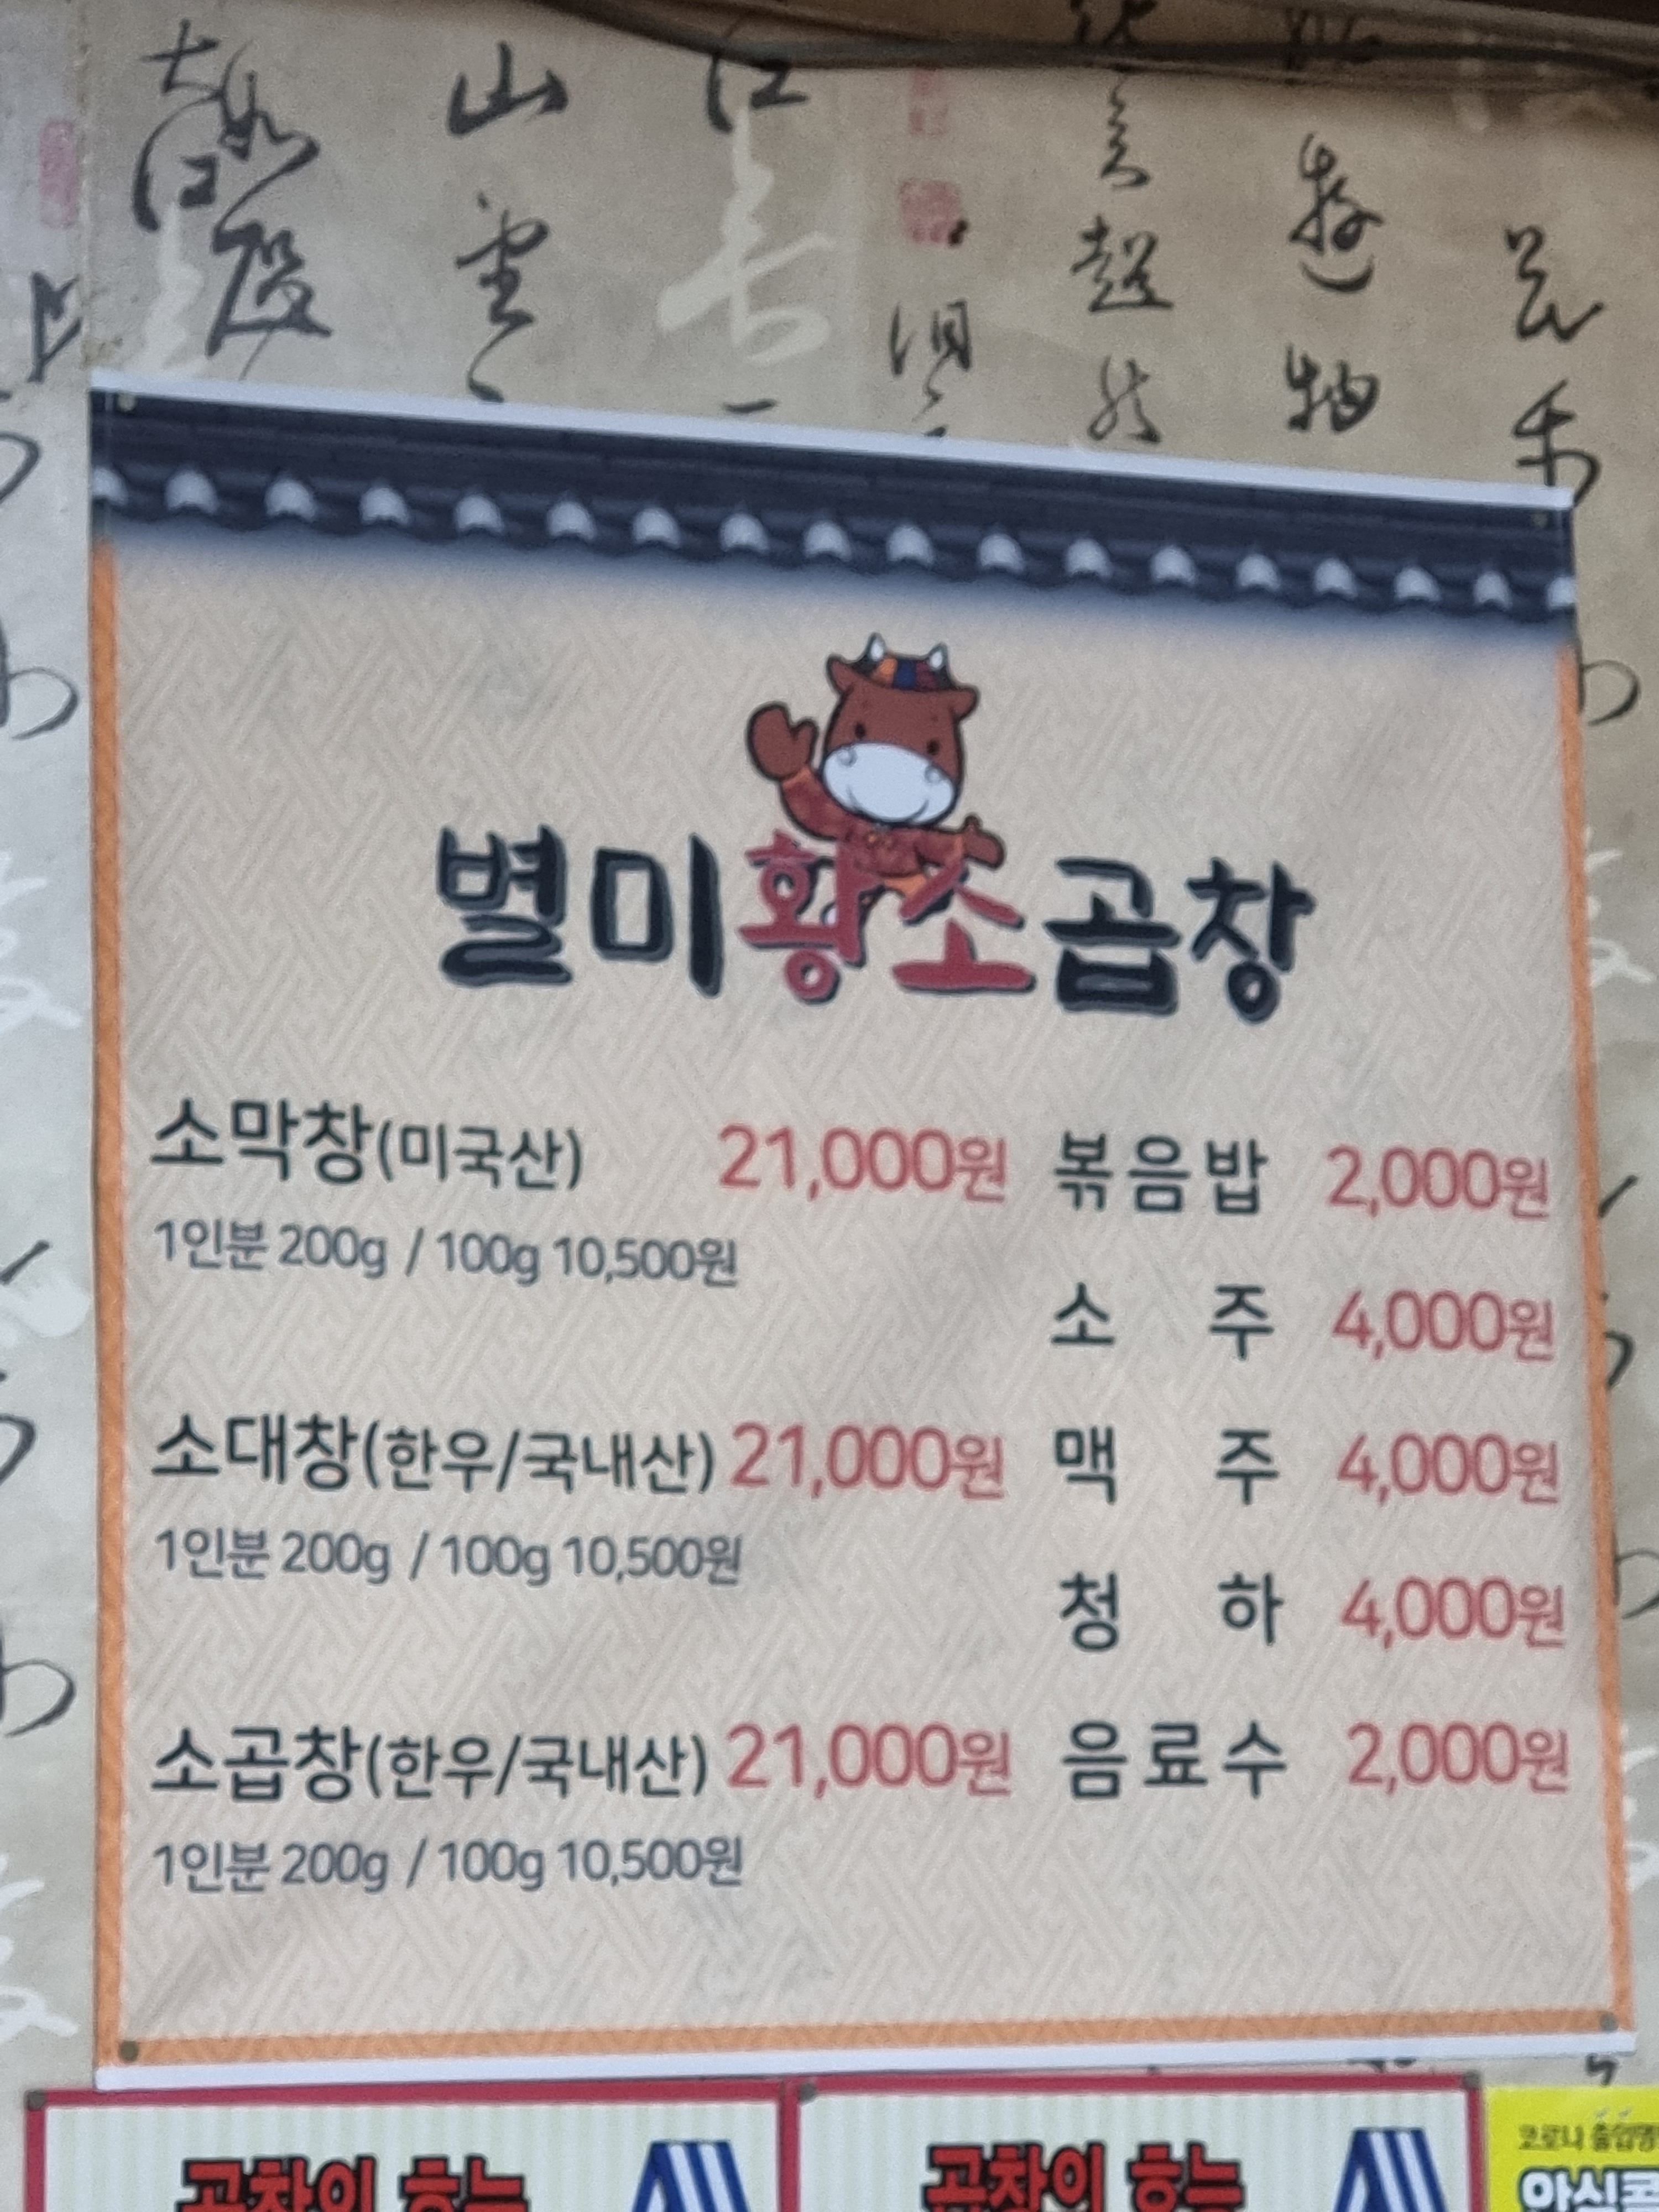 별미황소곱창
소막창(미국산) 21,000원
1인분 200g / 100g 10,500원
소대창(한우/국내산) 21,000원
1인분 200g / 100g 10,500원
소곱창(한우/국내산) 21,000원
1인분 200g / 100g 10,500원
볶음밥 2,000원
소 주 4,000원
맥 주 4,000원
청 하 4,000원
음료수 2,000원
곱창의 효능
곱창의 효능
코로나